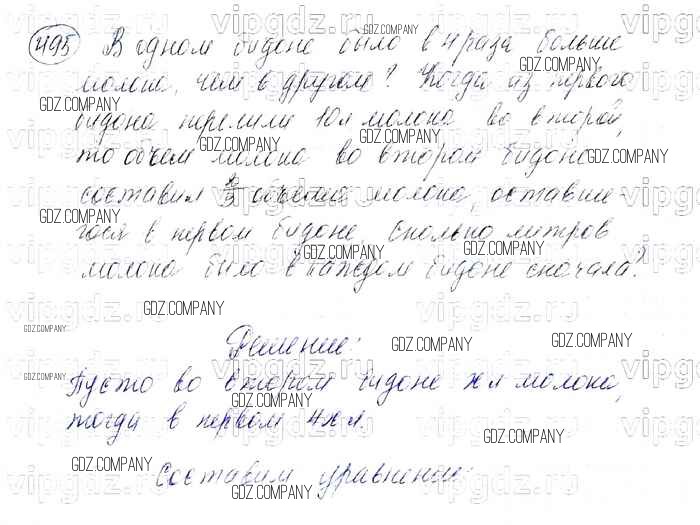 495 В одном бидоне было в 4 раза больше
молока, чем в другом? Когда из первого
бидона перелили 10 л молока во второй,
то объем молока во втором бидоне
составил 2/3 объема молока, оставше-
гося в первом бидоне. Сколько литров
молока было в каждом бидоне сначала?
Решение:
Пусть во втором бидоне x л молока,
тогда в первом 4x л.
Составим уравнение:
GDZ.COMPANY
vipgdz.ru